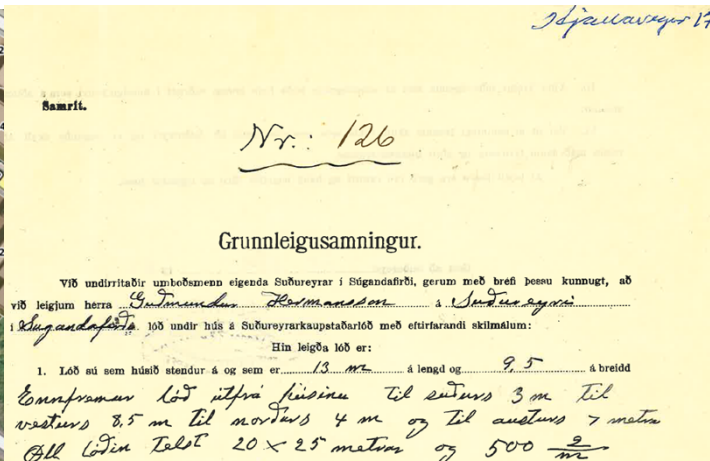 Hjallavegur 17
Samrit.
Nr.: 126
Grunnleigusamningur.
Við undirritaðir umboðsmenn eigenda Suðureyrar í Súgandafirði, gerum með bréfi þessu kunnugt, að
við leigjum herra Guðmundur Hermansson á Suðureyri
í Sugandafirði lóð undir hús á Suðureyrarkaupstaðarlóð með eftirfarandi skilmálum:
Hin leigða lóð er:
1. Lóð sú sem húsið stendur á og sem er 13 m á lengd og 9,5 á breidd
Ennfremur lóð útfrá húsinu til suðurs 3 m til
vesturs 8,5 m til norðurs 4 m og til austurs 7 metra
Öll lóðin telst 20 x 25 metrar og 500 m2